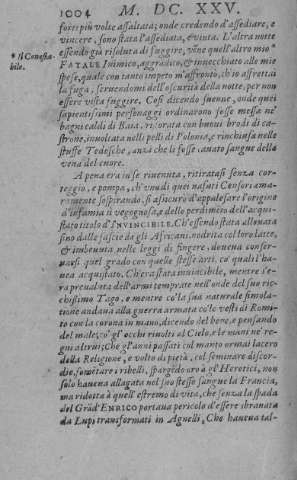 1004 M. DC. XXV.
forti più volte assaltata; onde credendo d'assediare, e
vincere, sono stata assediata, e vinta. L'altra notte
essendo già risoluta di fuggire, vẽne quell'altro mio *
* Il Conestabile.
FATALE Inimico, aggradito, e innecchiato alle mie
spese, quale con tanto impeto m'affrontò, ch'io affrettai
la fuga, seruendomi dell'oscurità della notte, per non
essere vista fuggire. Così dicendo suenne, onde quei
sapientissimi personaggi ordinarono fosse messa ne'
bagni caldi di Baia, ristorata con buoni brodi di ca-
strone, inuoltata nelli pelli di Polonia, e rinchiusa nelle
stuffe Tedesche, anzi che li fosse cauato sangue della
vena del cuore.
A pena era in se riuenuta, ritiratasi senza cor-
teggio, e pompa, ch'vn di quei nasuti Censori ama-
ramente sospirando, si assicurò d'appalesare l'origine
d'infamia sì vegognosa, e delle perdimẽto dell'acqui-
stato titolo d'INVINCIBILE. Ch'essendo stata alleuata
sino dalle fascie da gli Affricani, nodrita col loro latte,
& imbeuuta nelle leggi di fingere, doueua conser-
uarsi quel grado con quelle stesse arti, co' quali l'ha-
uea acquistato. Ch'era stata inuincibile, mentre s'e-
ra preualuta dell'armi temprate nell'onde del suo ric-
chissimo Tago, e mentre co'la sua naturale simola-
tione andaua alla guerra armata co'lo vesti di Romi-
to con la corona in mano, dicendo del bene, e pensando
del male, co' gl'occhi riuolti al Cielo, e le mani ne' re-
gni altrui; Che gl'anni passati col manto ormai lacero
della Religione, e volto di pietà, col seminare discor-
die, fomẽtare i ribelli, spargẽdo oro à gl'Heretici, non
solo haueua allagata nel suo stesso sangue la Francia,
ma ridotta à quell'estremo di vita, che senza la spada
del Grãd'ENRICO portaua pericolo d'essere sbranata
da Lupi transformati in Agnelli, Che haueua tal-